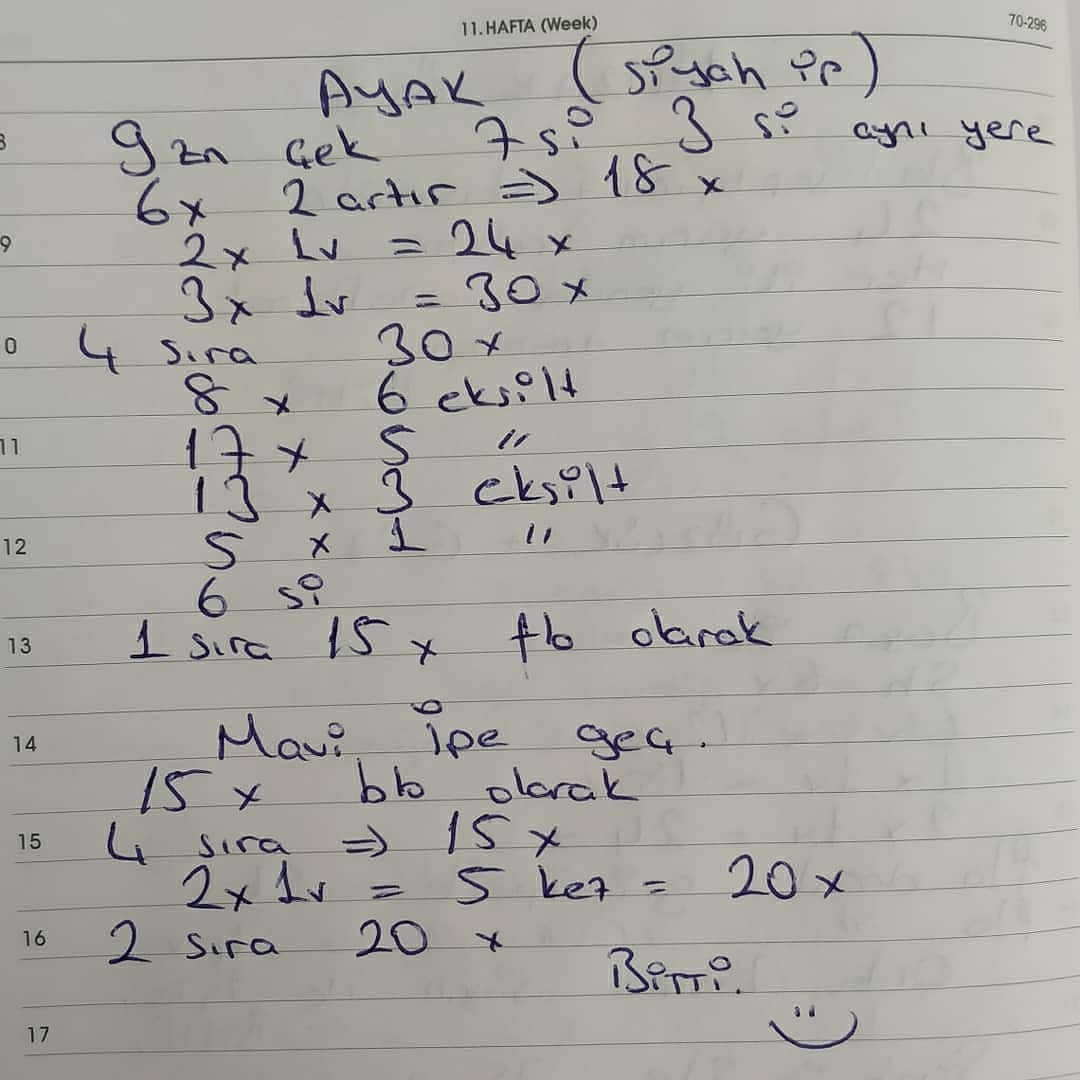 11. HAFTA (Week)
70-296
AYAK (siyah ip)
9 zn çek 7 si 3 si aynı yere
6x 2 artır => 18 x
9
2x 1v = 24 x
3x 1v = 30 x
0 4 sıra 30 x
8 x 6 eksilt
11
17 x 5 "
13 x 3 eksilt
12
5 x 1 "
6 si
13 1 sıra 15 x flo olarak
14 Mavi ipe geç.
15 x blo olarak
15 4 sıra => 15 x
2x 1v = 5 kez = 20 x
16 2 sıra 20 x
Bitti.
17